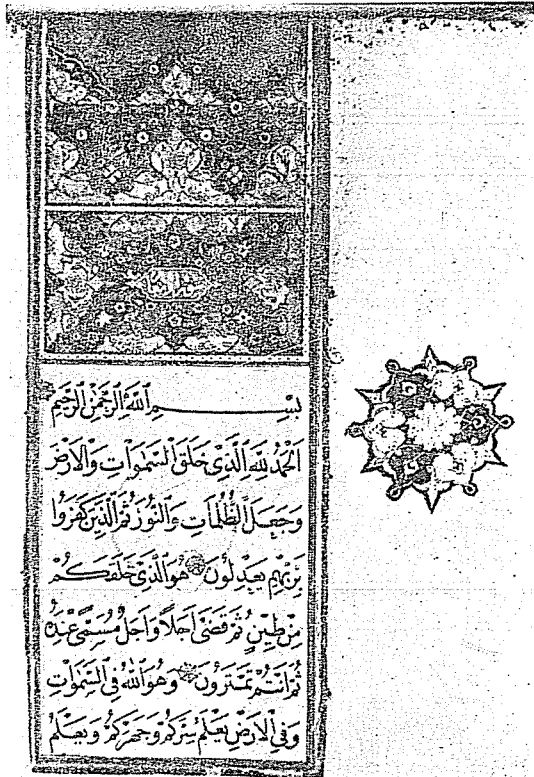 بِسْمِ اللّٰهِ الرَّحْمٰنِ الرَّحِيمِ
اَلْحَمْدُ لِلّٰهِ الَّذِي خَلَقَ السَّمٰوَاتِ وَالْاَرْضَ
وَجَعَلَ الظُّلُمَاتِ وَالنُّورَ ثُمَّ الَّذِينَ كَفَرُوا
بِرَبِّهِمْ يَعْدِلُونَ هُوَ الَّذِي خَلَقَكُمْ
مِنْ طِينٍ ثُمَّ قَضٰى اَجَلًا وَاَجَلٌ مُسَمًّى عِنْدَهُ
ثُمَّ اَنْتُمْ تَمْتَرُونَ وَهُوَ اللّٰهُ فِي السَّمٰوَاتِ
وَفِي الْاَرْضِ يَعْلَمُ سِرَّكُمْ وَجَهْرَكُمْ وَيَعْلَمُ